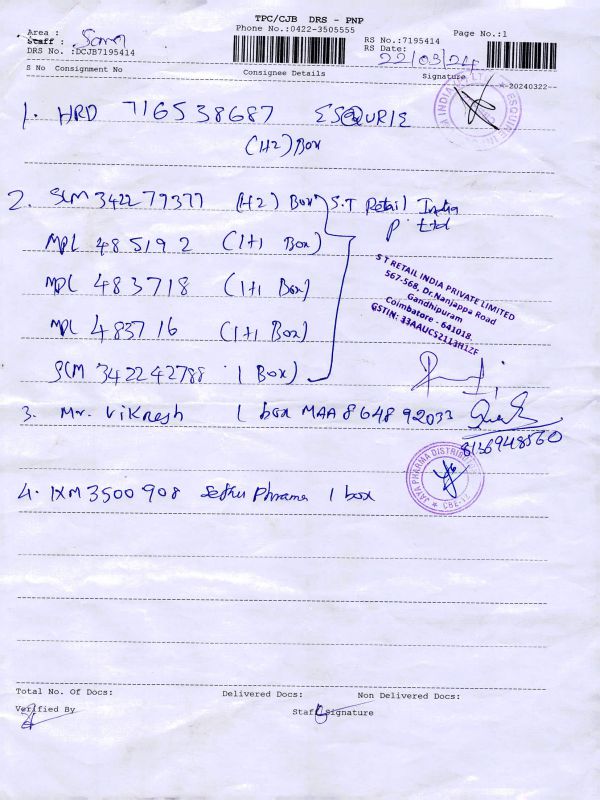 TPC/CJB DRS - PNP
Phone No.:0422-3505555
Page No.:1
Area :
Staff :
DRS No. :DCJB7195414
RS No.:7195414
RS Date: 22/03/24
S No Consignment No
Consignee Details
Signature
--20240322--
1. HRD 716538687 ESQURIE
(1+2) Box
2. SLM 342279377 (1+2) Box S.T Retail India
P Ltd
MPL 485192 (1+1 Box)
MPL 483718 (1+1 Box)
MPL 483716 (1+1 Box)
SLM 342242788 1 Box)
S T RETAIL INDIA PRIVATE LIMITED
567-568, Dr.Nanjappa Road
Gandhipuram
Coimbatore - 641018.
GSTIN: 33AAUCS2113H1ZF
3. Mr. Viknesh 1 box MAA 864892033
8136948560
JAYA PHARMA DISTRIBUTORS
CBE-12
4. IXM3500908 Sethu Phrama 1 box
Total No. Of Docs:
Delivered Docs:
Non Delivered Docs:
Verified By
Staff Signature